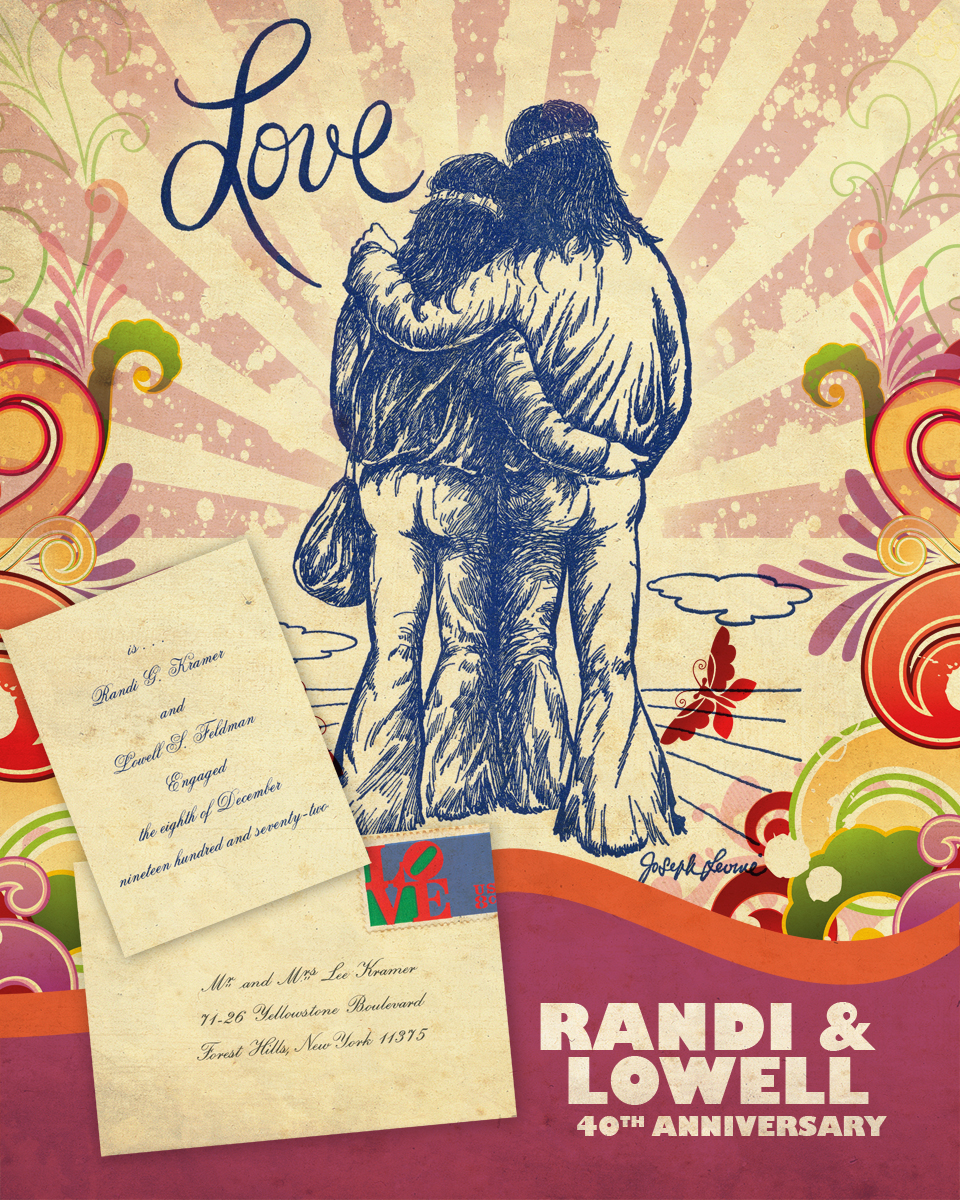 Love
is . . .
Randi G. Kramer
and
Lowell S. Feldman
Engaged
the eighth of December
nineteen hundred and seventy-two
LO
VE
US
8c
Joseph Levine
Mr. and Mrs. Lee Kramer
71-26 Yellowstone Boulevard
Forest Hills, New York 11375
RANDI &
LOWELL
40TH ANNIVERSARY